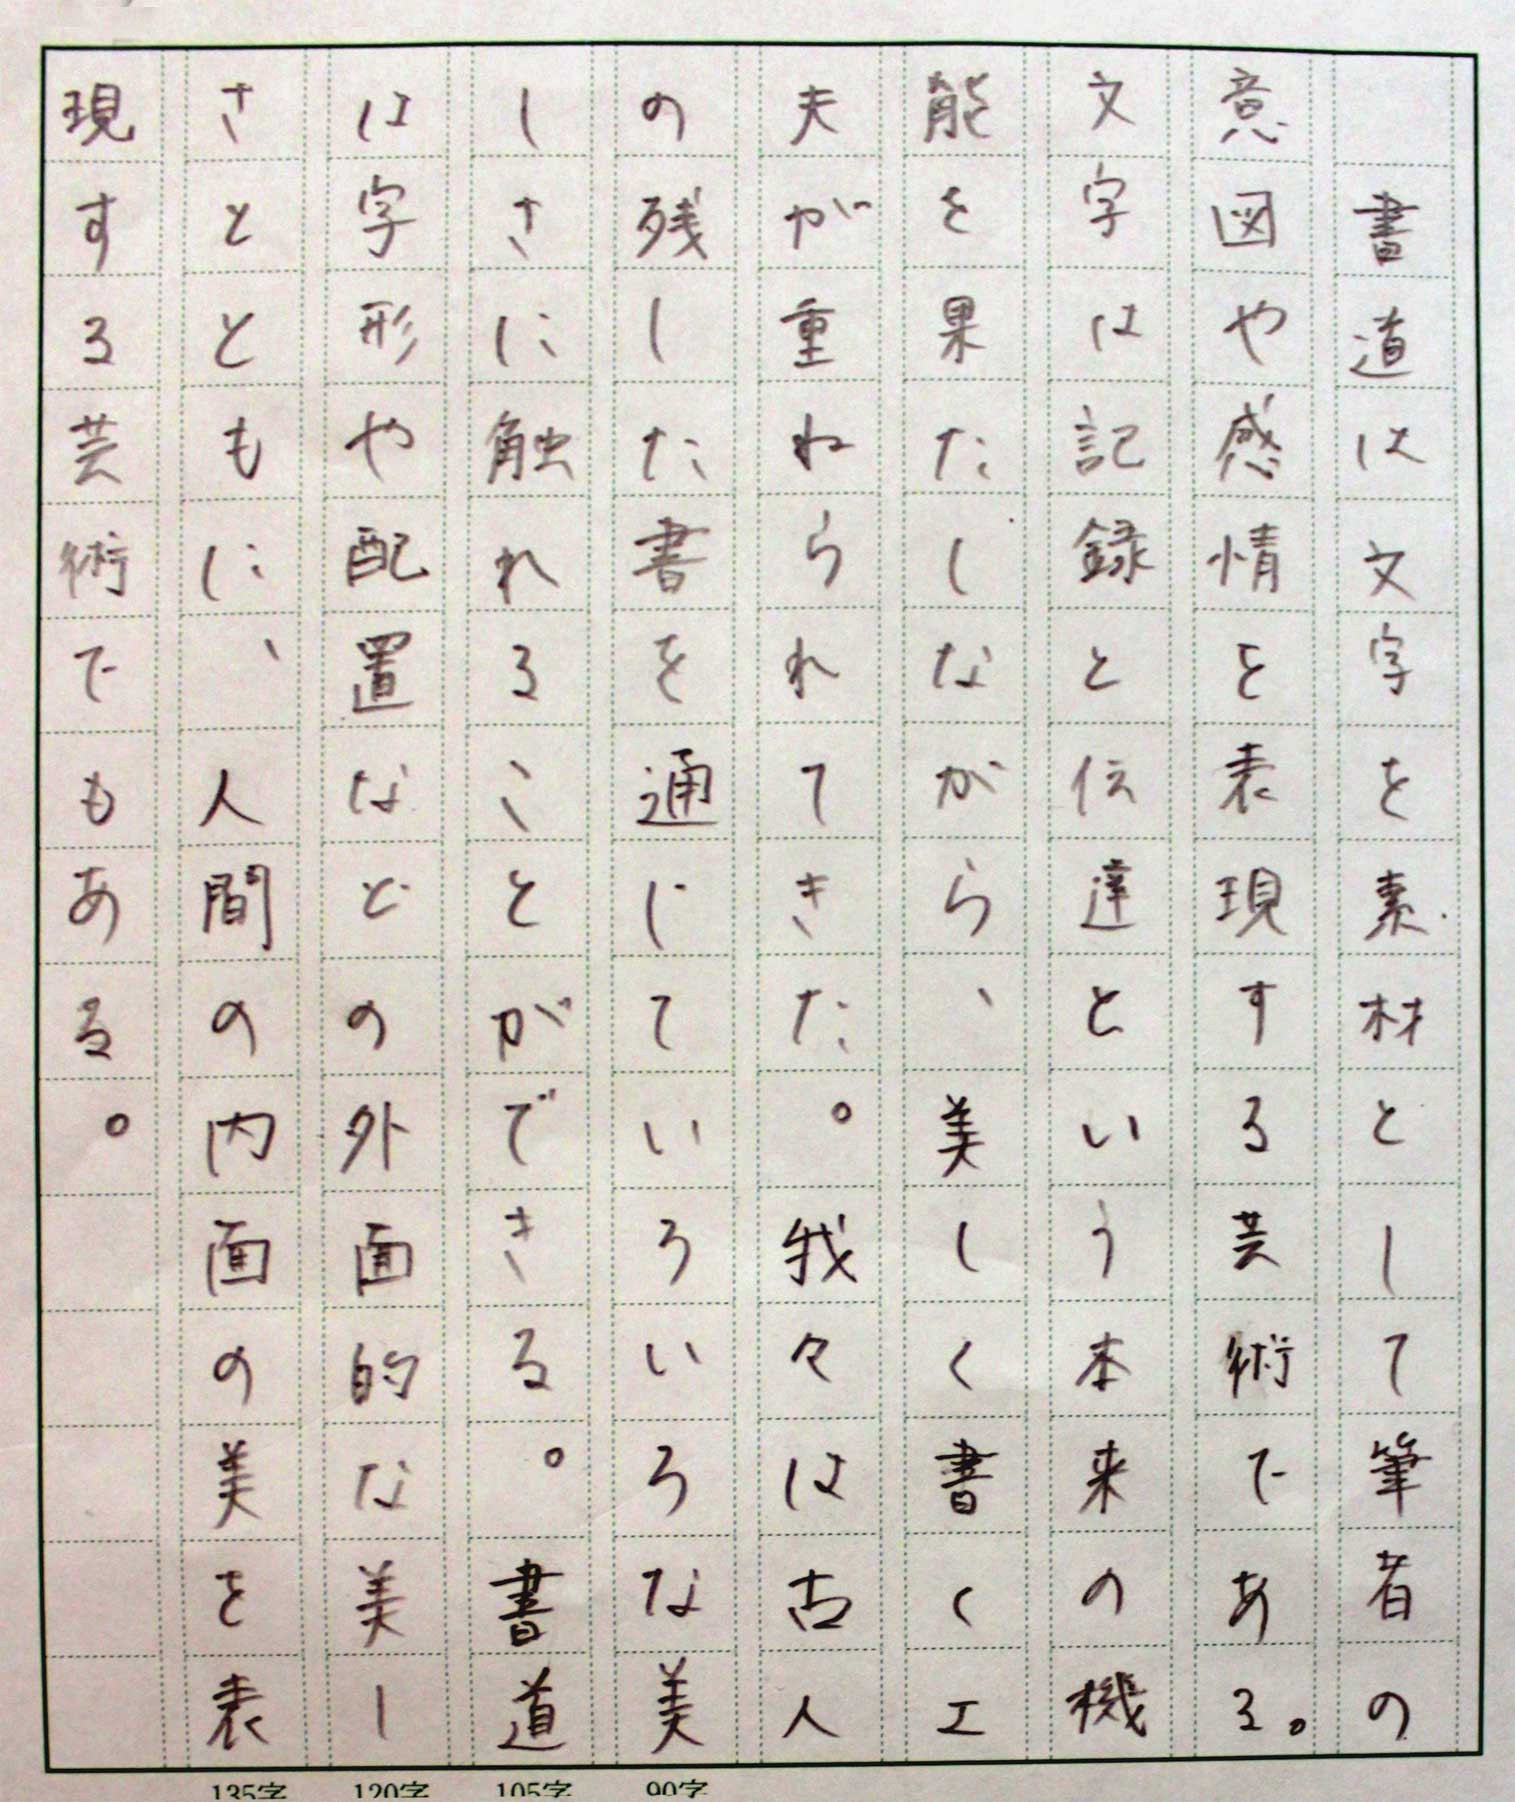 書道は文字を素材として筆者の
意図や感情を表現する芸術である。
文字は記録と伝達という本来の機
能を果たしながら、美しく書く工
夫が重ねられてきた。我々は古人
の残した書を通じていろいろな美
しさに触れることができる。書道
は字形や配置などの外面的な美し
さとともに、人間の内面の美を表
現する芸術でもある。
135字 120字 105字 90字